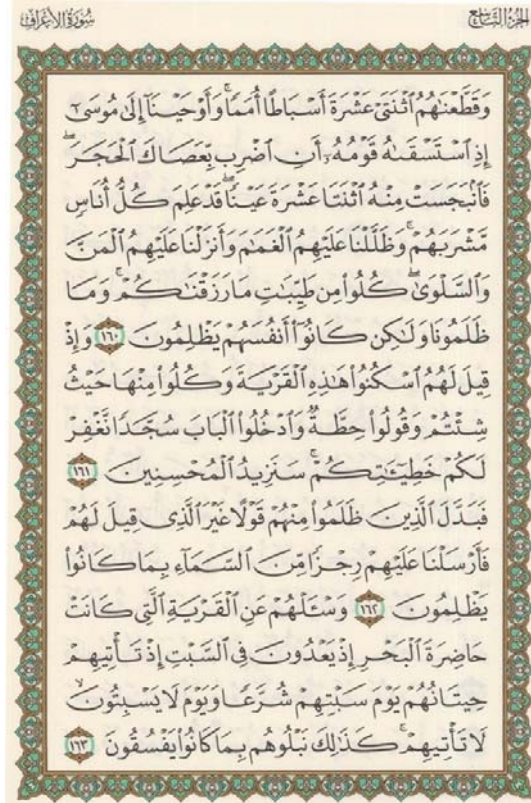 الجزء التاسع
سورة الأعراف
وَقَطَّعْنَٰهُمُ ٱثْنَتَىْ عَشْرَةَ أَسْبَاطًا أُمَمًا ۚ وَأَوْحَيْنَآ إِلَىٰ مُوسَىٰٓ
إِذِ ٱسْتَسْقَىٰهُ قَوْمُهُۥٓ أَنِ ٱضْرِب بِّعَصَاكَ ٱلْحَجَرَ ۖ
فَٱنۢبَجَسَتْ مِنْهُ ٱثْنَتَا عَشْرَةَ عَيْنًا ۖ قَدْ عَلِمَ كُلُّ أُنَاسٍ
مَّشْرَبَهُمْ ۚ وَظَلَّلْنَا عَلَيْهِمُ ٱلْغَمَٰمَ وَأَنزَلْنَا عَلَيْهِمُ ٱلْمَنَّ
وَٱلسَّلْوَىٰ ۖ كُلُوا۟ مِن طَيِّبَٰتِ مَا رَزَقْنَٰكُمْ ۚ وَمَا
ظَلَمُونَا وَلَٰكِن كَانُوٓا۟ أَنفُسَهُمْ يَظْلِمُونَ ١٦٠ وَإِذْ
قِيلَ لَهُمُ ٱسْكُنُوا۟ هَٰذِهِ ٱلْقَرْيَةَ وَكُلُوا۟ مِنْهَا حَيْثُ
شِئْتُمْ وَقُولُوا۟ حِطَّةٌ وَٱدْخُلُوا۟ ٱلْبَابَ سُجَّدًا نَّغْفِرْ
لَكُمْ خَطِيٓـَٰٔتِكُمْ ۚ سَنَزِيدُ ٱلْمُحْسِنِينَ ١٦١
فَبَدَّلَ ٱلَّذِينَ ظَلَمُوا۟ مِنْهُمْ قَوْلًا غَيْرَ ٱلَّذِى قِيلَ لَهُمْ
فَأَرْسَلْنَا عَلَيْهِمْ رِجْزًا مِّنَ ٱلسَّمَآءِ بِمَا كَانُوا۟
يَظْلِمُونَ ١٦٢ وَسْـَٔلْهُمْ عَنِ ٱلْقَرْيَةِ ٱلَّتِى كَانَتْ
حَاضِرَةَ ٱلْبَحْرِ إِذْ يَعْدُونَ فِى ٱلسَّبْتِ إِذْ تَأْتِيهِمْ
حِيتَانُهُمْ يَوْمَ سَبْتِهِمْ شُرَّعًا وَيَوْمَ لَا يَسْبِتُونَ ۙ
لَا تَأْتِيهِمْ ۚ كَذَٰلِكَ نَبْلُوهُم بِمَا كَانُوا۟ يَفْسُقُونَ ١٦٣